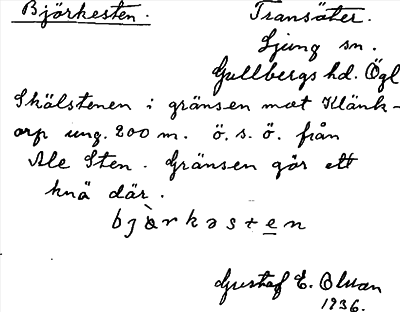 Björkesten.
Transäter.
Ljung sn.
Gullbergs hd. Ögl
Skälstenen i gränsen mot Klänk-
orp ung. 200 m. ö. s. ö. från
Ale Sten. Gränsen gör ett
knä där.
bjàrkəsten
Gustaf E. Olsson
1936.